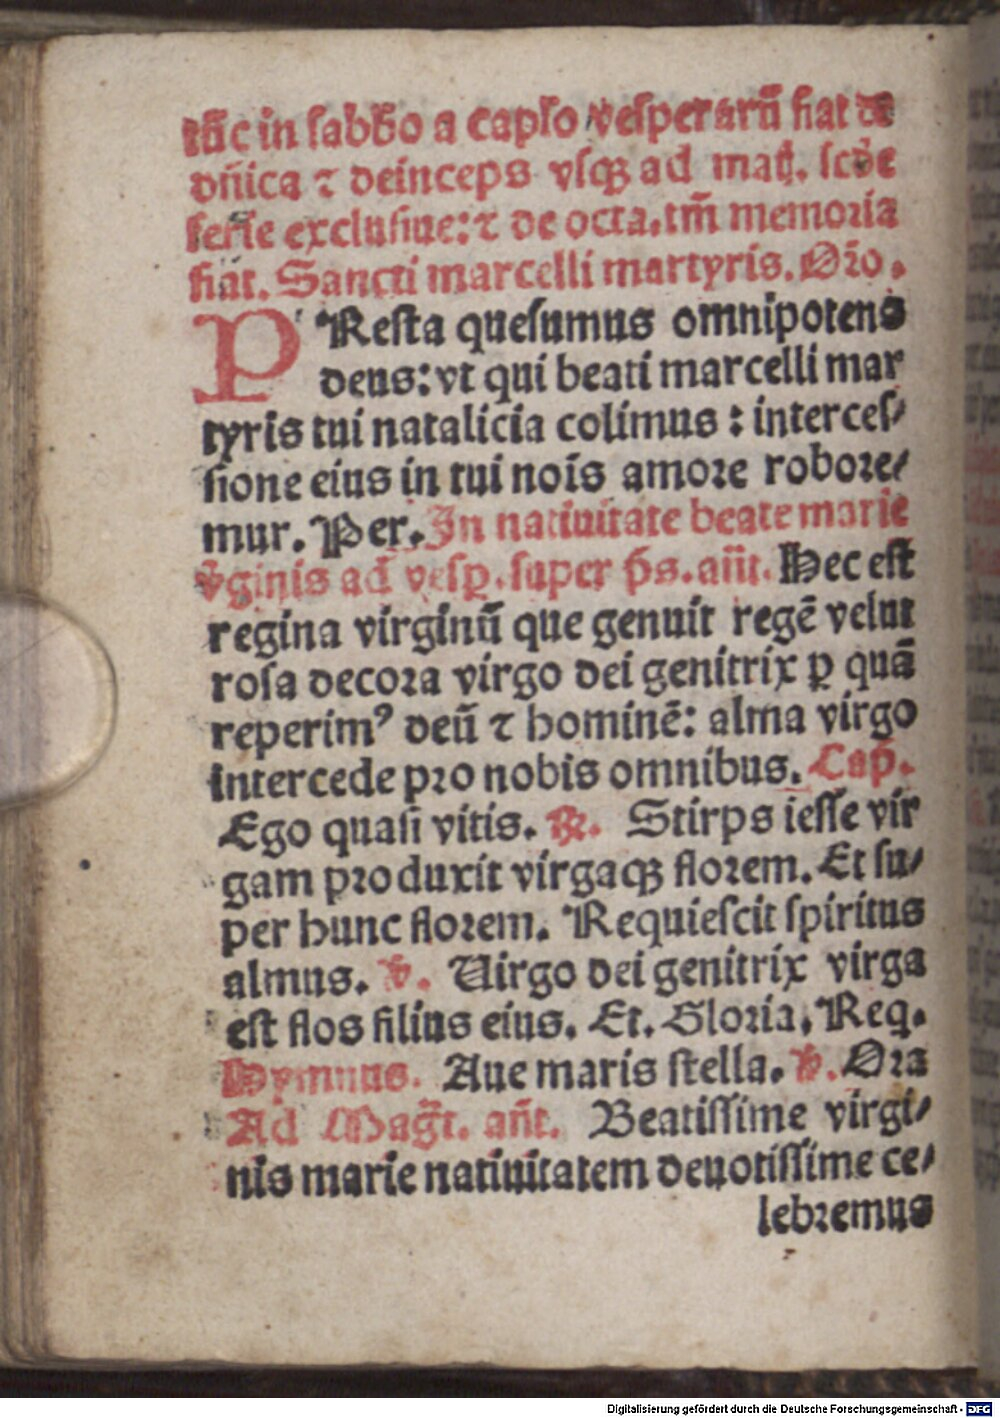 tūc in sabb̄o a cap̄lo vesperarū fiat de
dn̄ica ⁊ deinceps vsqꝫ ad mat̄. scd̄e
ferie exclusiue: ⁊ de octa. tm̄ memoria
fiat. Sancti marcelli martyris. Or̄o.
PResta quesumus omnipotens
deus: vt qui beati marcelli mar
tyris tui natalicia colimus: interces/
sione eius in tui nois̄ amore robore/
mur. Per. In natiuitate beate marie
v̄ginis ad vesꝑ. super p̄s. an̄t. Hec est
regina virginū que genuit regē velut
rosa decora virgo dei genitrix ꝑ quā
reperimꝰ deū ⁊ hominē: alma virgo
intercede pro nobis omnibus. Cap̄.
Ego quasi vitis. ℟. Stirps iesse vir
gam produxit virgaqꝫ florem. Et su/
per hunc florem. Requiescit spiritus
almus. ℣. Uirgo dei genitrix virga
est flos filius eius. Et. Gloria. Req.
Hymnus. Aue maris stella. ℣. Ora
Ad Maḡt. an̄t. Beatissime virgi/
nis marie natiuitatem deuotissime ce/
lebremus
Digitalisierung gefördert durch die Deutsche Forschungsgemeinschaft - DFG